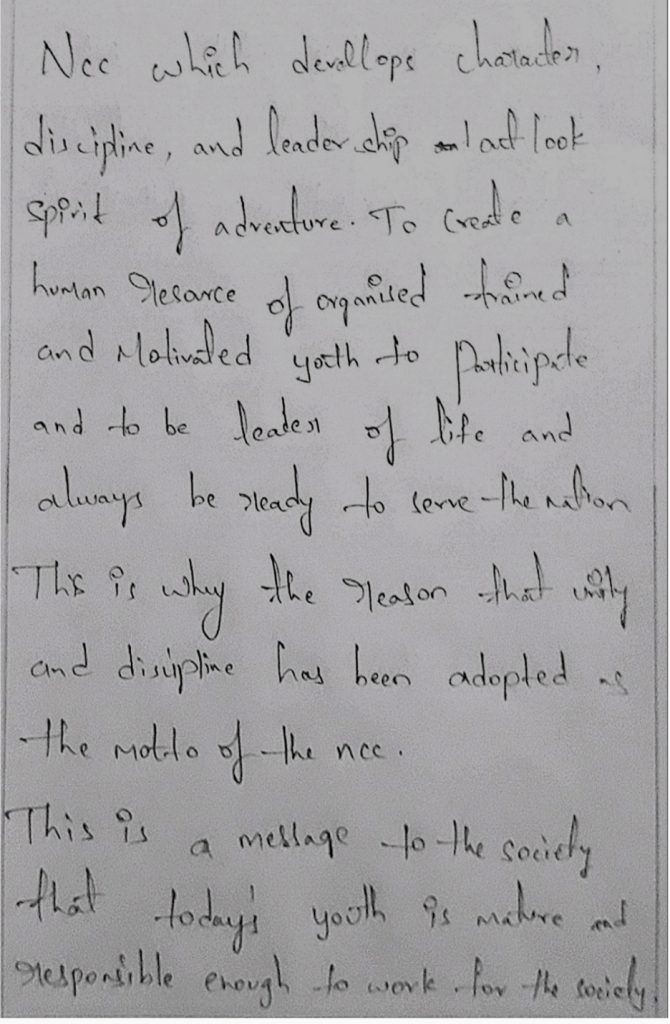 Ncc which devellops character,
discipline, and leadership look
spirit of adventure. To Create a
human resource of organised trained
and Motivated youth to Participate
and to be leader of life and
always be ready to serve the nation
This is why the reason that unity
and discipline has been adopted as
the motto of the ncc.
This is a message to the society
that today's youth is mature and
responsible enough to work for the society.